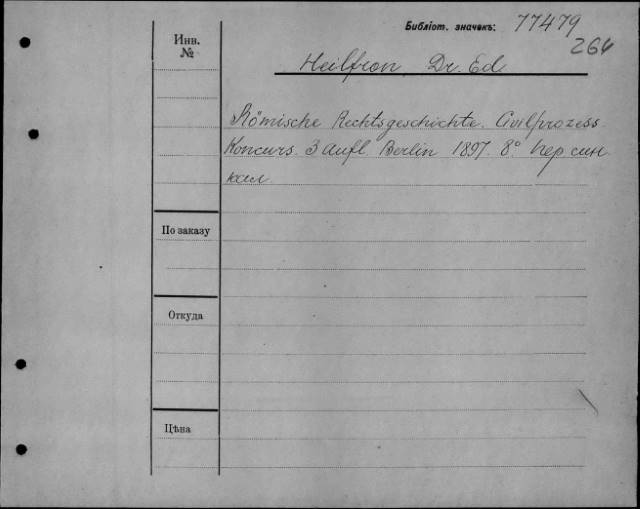 Библіот. значекъ: 77479
264
Инв.
№
Heilfron, Dr. Ed
Römische Rechtsgeschichte. Civilprozess
Koncurs. 3 Aufl. Berlin 1897. 8° пер син.
кал.
По заказу
Откуда
Цѣна